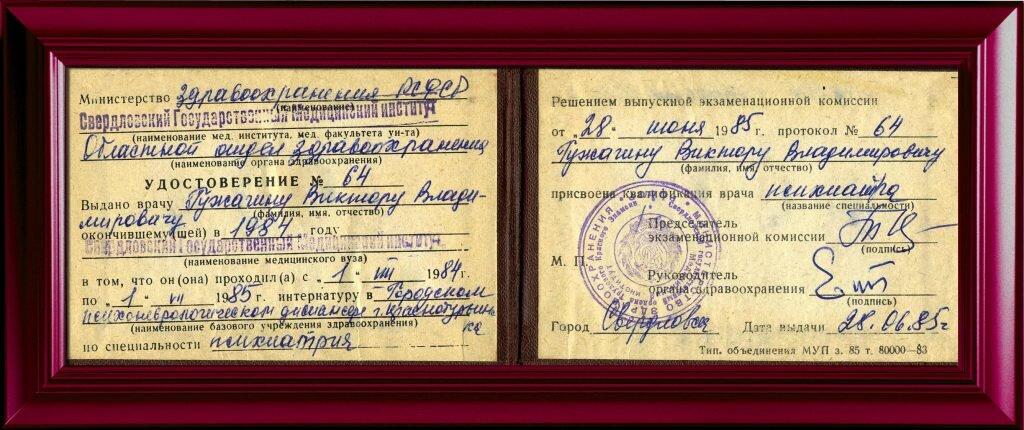 Министерство здравоохранения РСФСР
(наименование)
Свердловский Государственный Медицинский институт
(наименование мед. института, мед. факультета ун-та)
Областной отдел здравоохранения
(наименование органа здравоохранения)
УДОСТОВЕРЕНИЕ № 64
Выдано врачу Гужагину Виктору Влади-
(фамилия, имя, отчество)
мировичу
окончившему(шей) в 1984 году
Свердловский Государственный Медицинский институт
(наименование медицинского вуза)
в том, что он(она) проходил(а) с „1“ VIII 1984 г.
по „1“ VII 1985 г. интернатуру в Городском
психоневрологическом диспансере г. Краснотурьинс
ка
(наименование базового учреждения здравоохранения)
по специальности психиатрия
Решением выпускной экзаменационной комиссии
от „28“ июня 1985 г. протокол № 64
Гужагину Виктору Владимировичу
(фамилия, имя, отчество)
присвоена квалификация врача психиатра
(название специальности)
Председатель
экзаменационной комиссии
(подпись)
М. П.
Руководитель
органа здравоохранения
(подпись)
Город Свердловск Дата выдачи 28.06.85г
Тип. объединения МУП з. 85 т. 80000—83